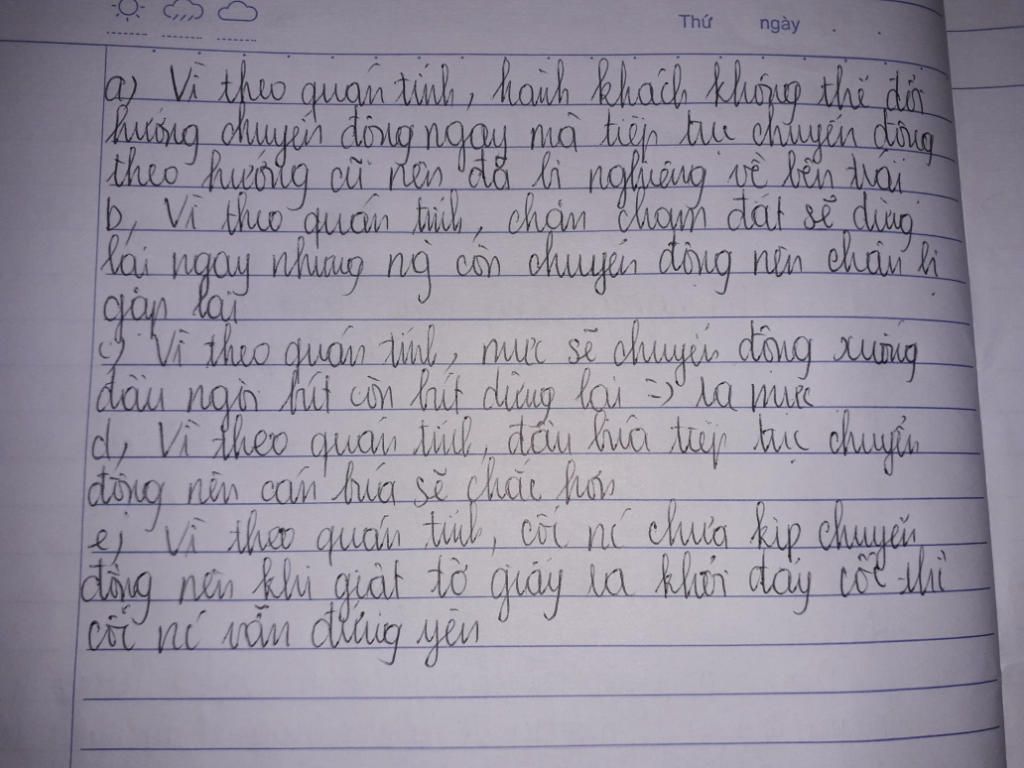 Thứ ngày
a) Vì theo quán tính, hành khách không thể đổi
hướng chuyển động ngay mà tiếp tục chuyển động
theo hướng cũ nên đã bị nghiêng về bên trái
b, Vì theo quán tính, chân chạm đất sẽ dừng
lại ngay nhưng ng còn chuyển động nên chân bị
gập lại
c) Vì theo quán tính, mực sẽ chuyển động xuống
đầu ngòi bút còn bút dừng lại => ra mực
d, Vì theo quán tính, đầu búa tiếp tục chuyển
động nên cán búa sẽ chắc hơn
e) Vì theo quán tính, cốc nc chưa kịp chuyển
động nên khi giật tờ giấy ra khỏi đáy cốc thì
cốc nc vẫn đứng yên